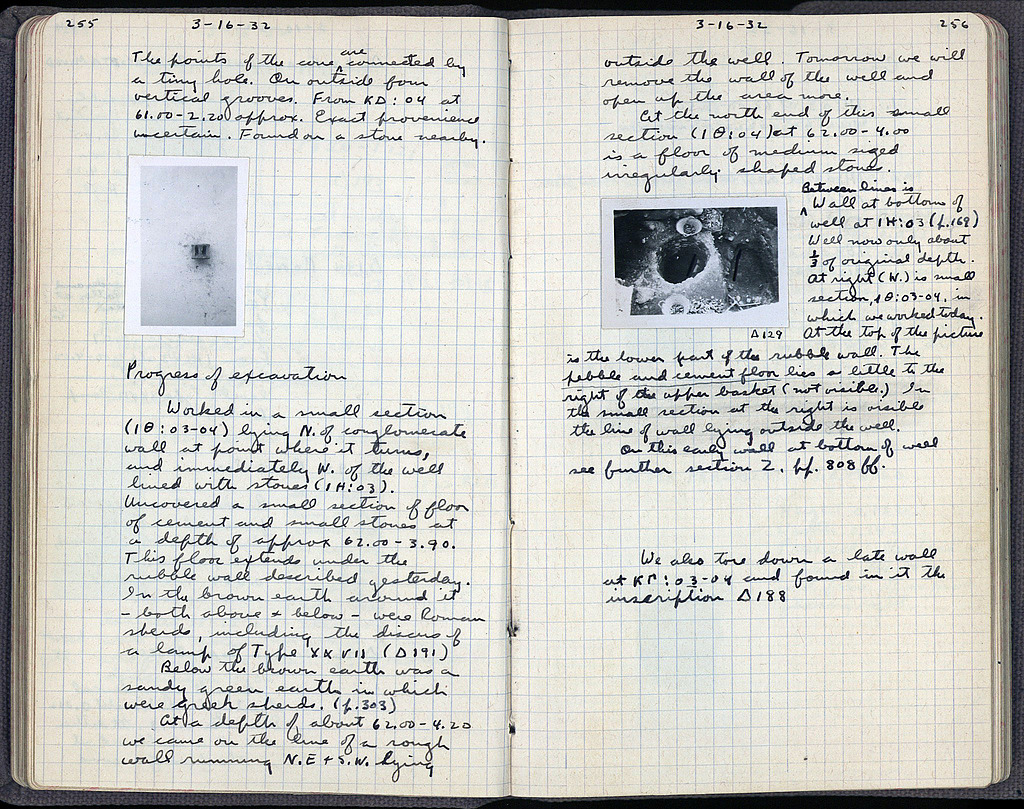 255
3-16-32
The points of the cone are connected by
a tiny hole. On outside four
vertical grooves. From ΚΔ:04 at
61.00-2.20 approx. Exact provenience
uncertain. Found on a stone nearby.
Progress of excavation
Worked in a small section
(1Θ:03-04) lying N. of conglomerate
wall at point where it turns,
and immediately W. of the well
lined with stones (1H:03).
Uncovered a small section of floor
of cement and small stones at
a depth of approx 62.00-3.90.
This floor extends under the
rubble wall described yesterday.
In the brown earth around it
- both above + below - were Roman
sherds, including the discus of
a lamp of Type XXVII (Δ191)
Below the brown earth was a
sandy green earth in which
were greek sherds. (p.303)
At a depth of about 62.00-4.20
we came on the line of a rough
wall running N.E + S.W. lying
3-16-32
256
outside the well. Tomorrow we will
remove the wall of the well and
open up the area more.
At the north end of this small
section (1Θ:04) at 62.00-4.00
is a floor of medium sized
irregularly shaped stones.
Between lines is
^ Wall at bottom of
well at 1H:03 (p.169)
Well now only about
1/3 of original depth.
At right (N.) is small
section, 1Θ:03-04, in
which we worked today.
Δ129
At the top of the picture
is the lower part of the rubble wall. The
pebble and cement floor lies a little to the
right of the upper basket (not visible.) In
the small section at the right is visible
the line of wall lying outside the well.
On this early wall at bottom of well
see further section Z, pp. 808 ff.
We also tore down a late wall
at ΚΓ:03-04 and found in it the
inscription Δ188